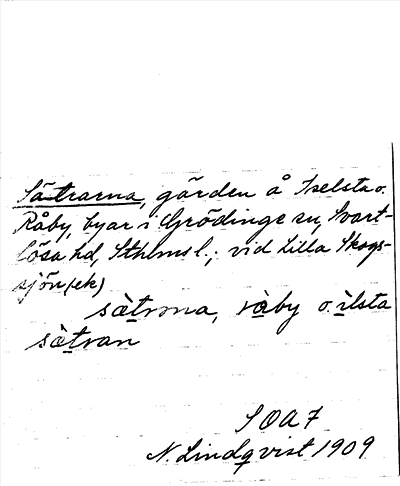 Sätrarna, gärden å Iselsta o.
Råby, byar i Grödinge sn, Svart-
lösa hd, Sthlms l.; vid Lilla Skogs-
sjön (ek)
sàtrona, ràby o. ìlsta
sàtran
SOA 7
N. Lindqvist 1909